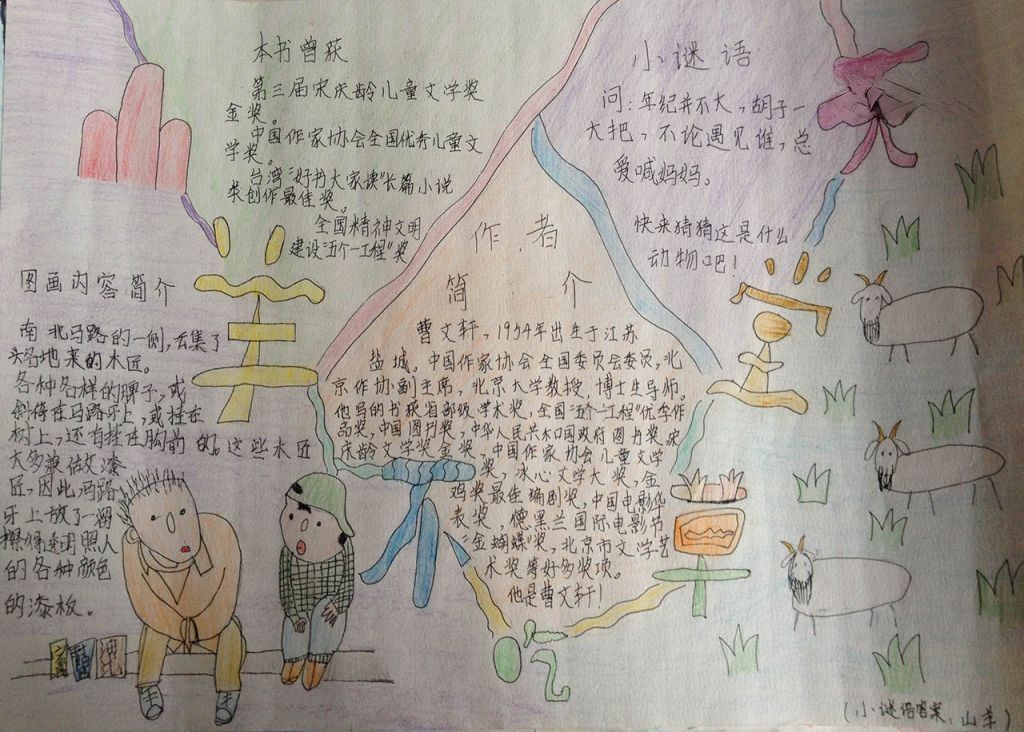 本书曾获
第三届宋庆龄儿童文学奖
金奖。
中国作家协会全国优秀儿童文
学奖。
台湾“好书大家读”长篇小说
类创作最佳奖。
全国精神文明
建设“五个一工程”奖
小谜语
问:年纪并不大,胡子一
大把,不论遇见谁,总
爱喊妈妈。
快来猜猜这是什么
动物吧!
图画内容简介
南北马路的一侧,云集了
各地来的木匠。
各种各样的牌子,或
斜倚在马路牙上,或挂在
树上,还有挂在胸前的。这些木匠
大多兼做油漆
匠,因此马路
牙上放了一溜
擦得透明照人
的各种颜色
的漆板。
作者
简介
曹文轩,1954年出生于江苏
盐城。中国作家协会全国委员会委员,北
京作协副主席,北京大学教授,博士生导师。
他写的书获省部级学术奖,全国“五个一工程”优秀作
品奖,中国图书奖,中华人民共和国政府图书奖,宋
庆龄文学奖金奖,中国作家协会儿童文学
奖,冰心文学大奖,金
鸡奖最佳编剧奖,中国电影华
表奖,德黑兰国际电影节
“金蝴蝶”奖,北京市文学艺
术奖等好多奖项。
他是曹文轩!
(小谜语答案,山羊)